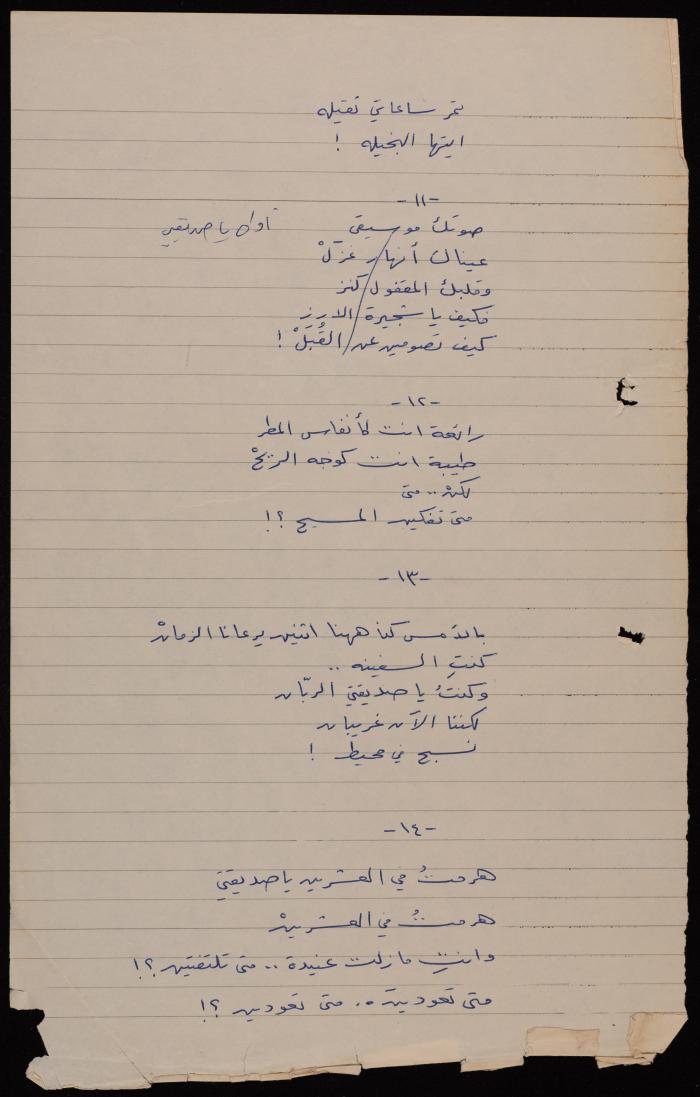 تمر ساعاتي ثقيله
ايتها البخيله !
-١١-
صوتك موسيقى
اواه يا صديقتي
عيناك أنهار غزَلْ
وقلبك المقفول كنز
فكيف يا شجيرة الارز
كيف تصومين عن القُبَلْ !
-١٢-
رائعة انت كأنفاس المطر
طيبة انت كوجه الريحْ
لكنْ .. متى
متى تفكين المسيح ؟!
-١٣-
بالأمس كنا ههنا اثنين يرعانا الزمانْ
كنتِ السفينه ..
وكنتُ يا صديقتي الربّان
لكننا الآن غريبان
نسبح في محيط !
-١٤-
هرمتُ في العشرين يا صديقتي
هرمتُ في العشرينْ
وانتِ مازلت عنيدة .. متى تلتفتين ؟!
متى تعودين .. متى تعودين ؟!